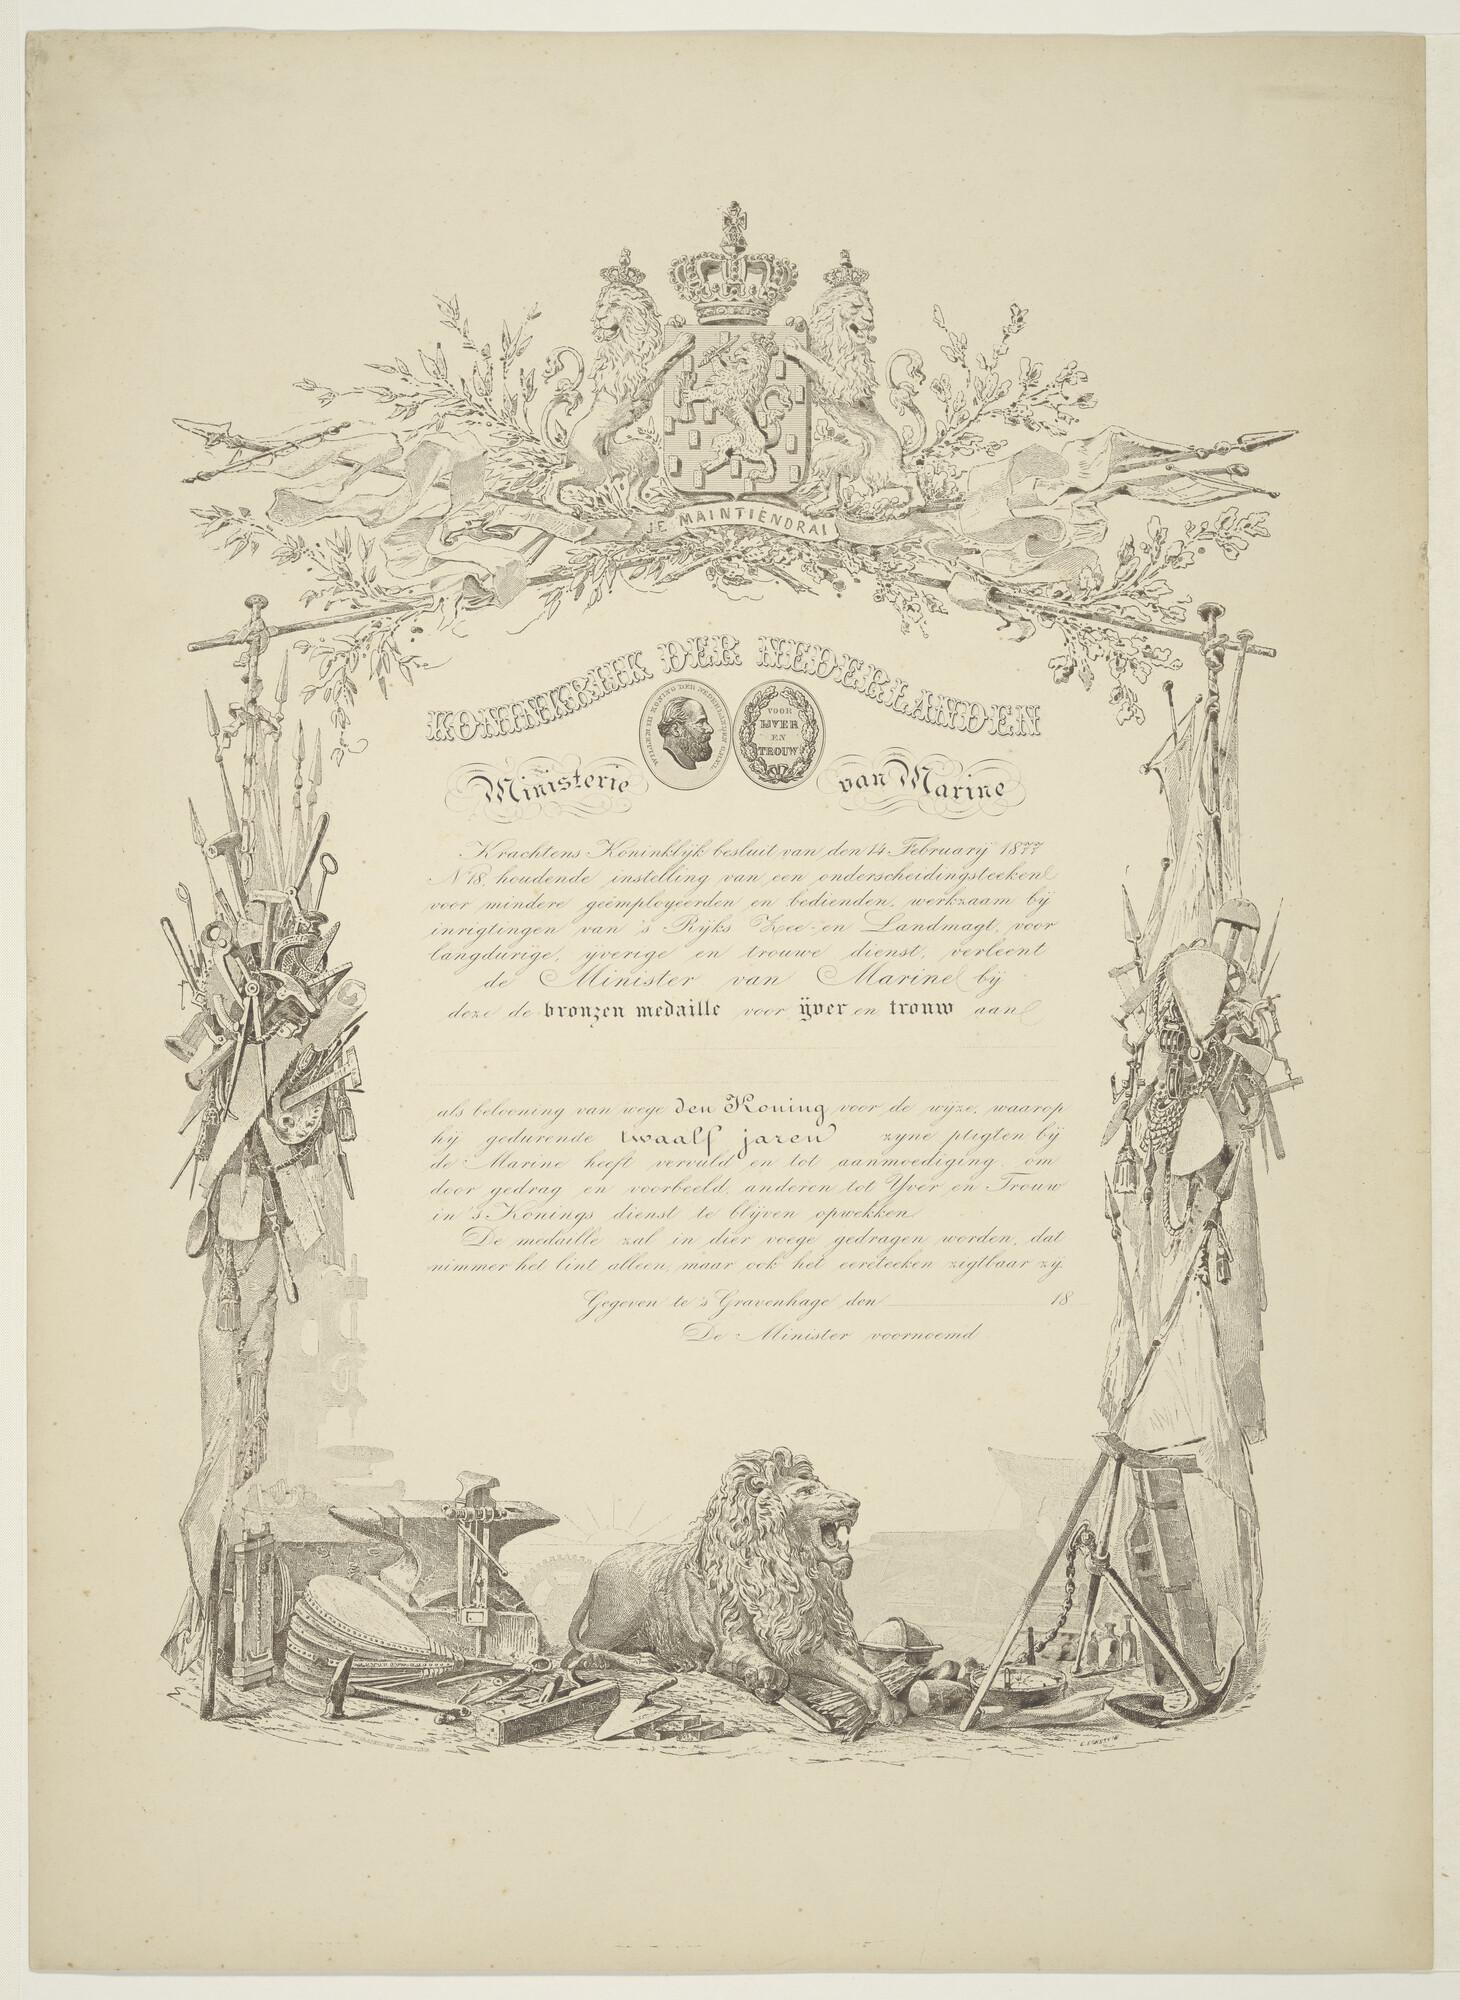 JE MAINTIENDRAI
KONINKRIJK DER NEDERLANDEN
WILLEM III KONING DER NEDERLANDEN G.H.V.L.
VOOR
IJVER
EN
TROUW
Ministerie van Marine
Krachtens Koninklijk besluit van den 14 February 1877
No 18, houdende instelling van een onderscheidingsteeken
voor mindere geëmployeerden en bedienden, werkzaam bij
inrigtingen van 's Rijks Zee- en Landmagt, voor
langdurige, ijverige en trouwe dienst, verleent
de Minister van Marine bij
deze de bronzen medaille voor ijver en trouw aan
als belooning van wege den Koning voor de wijze, waarop
hij gedurende twaalf jaren zijne pligten bij
de Marine heeft vervuld en tot aanmoediging om
door gedrag en voorbeeld, anderen tot Yver en Trouw
in 's Konings dienst te blijven opwekken.
De medaille zal in dier voege gedragen worden, dat
nimmer het lint alleen, maar ook het eereteeken zigtbaar zij.
Gegeven te 's Gravenhage den 18
De Minister voornoemd